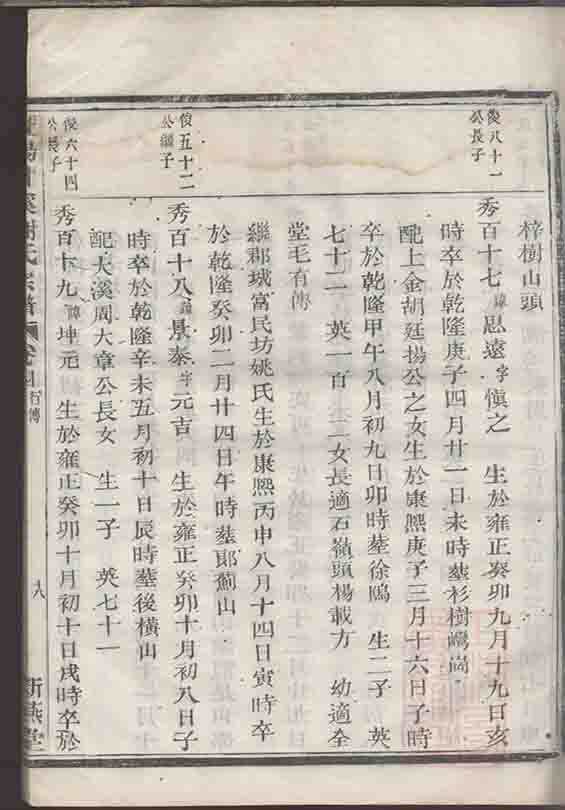 梓樹山頭
俊八十一
公長子
秀百十七諱思遠字愼之 生於雍正癸卯九月十九日亥
時卒於乾隆庚子四月廿一日未時塟杉樹塢尚
配上金胡廷揚公之女生於康熙庚子三月十六日子時
卒於乾隆甲午八月初九日卯時塟徐鴎 生二子 英
七十二 英一百 二女長適石嶺頭楊載方 幼適全
堂毛有傳
繼郡城富民坊姚氏生於康熙丙申八月十四日寅時卒
於乾隆癸卯二月廿四日午時塟郎薊山
俊五十二
公繼子
秀百十八諱景泰字元吉 生於雍正癸卯十月初八日子
時卒於乾隆辛未五月初十日辰時塟後横山
配大溪周大章公長女 生一子 英七十一
俊六十四
公長子
秀百十九諱坤元 生於雍正癸卯十月初十日戌時卒於
溪謝氏宗譜 卷四 行傳 八 新燕堂